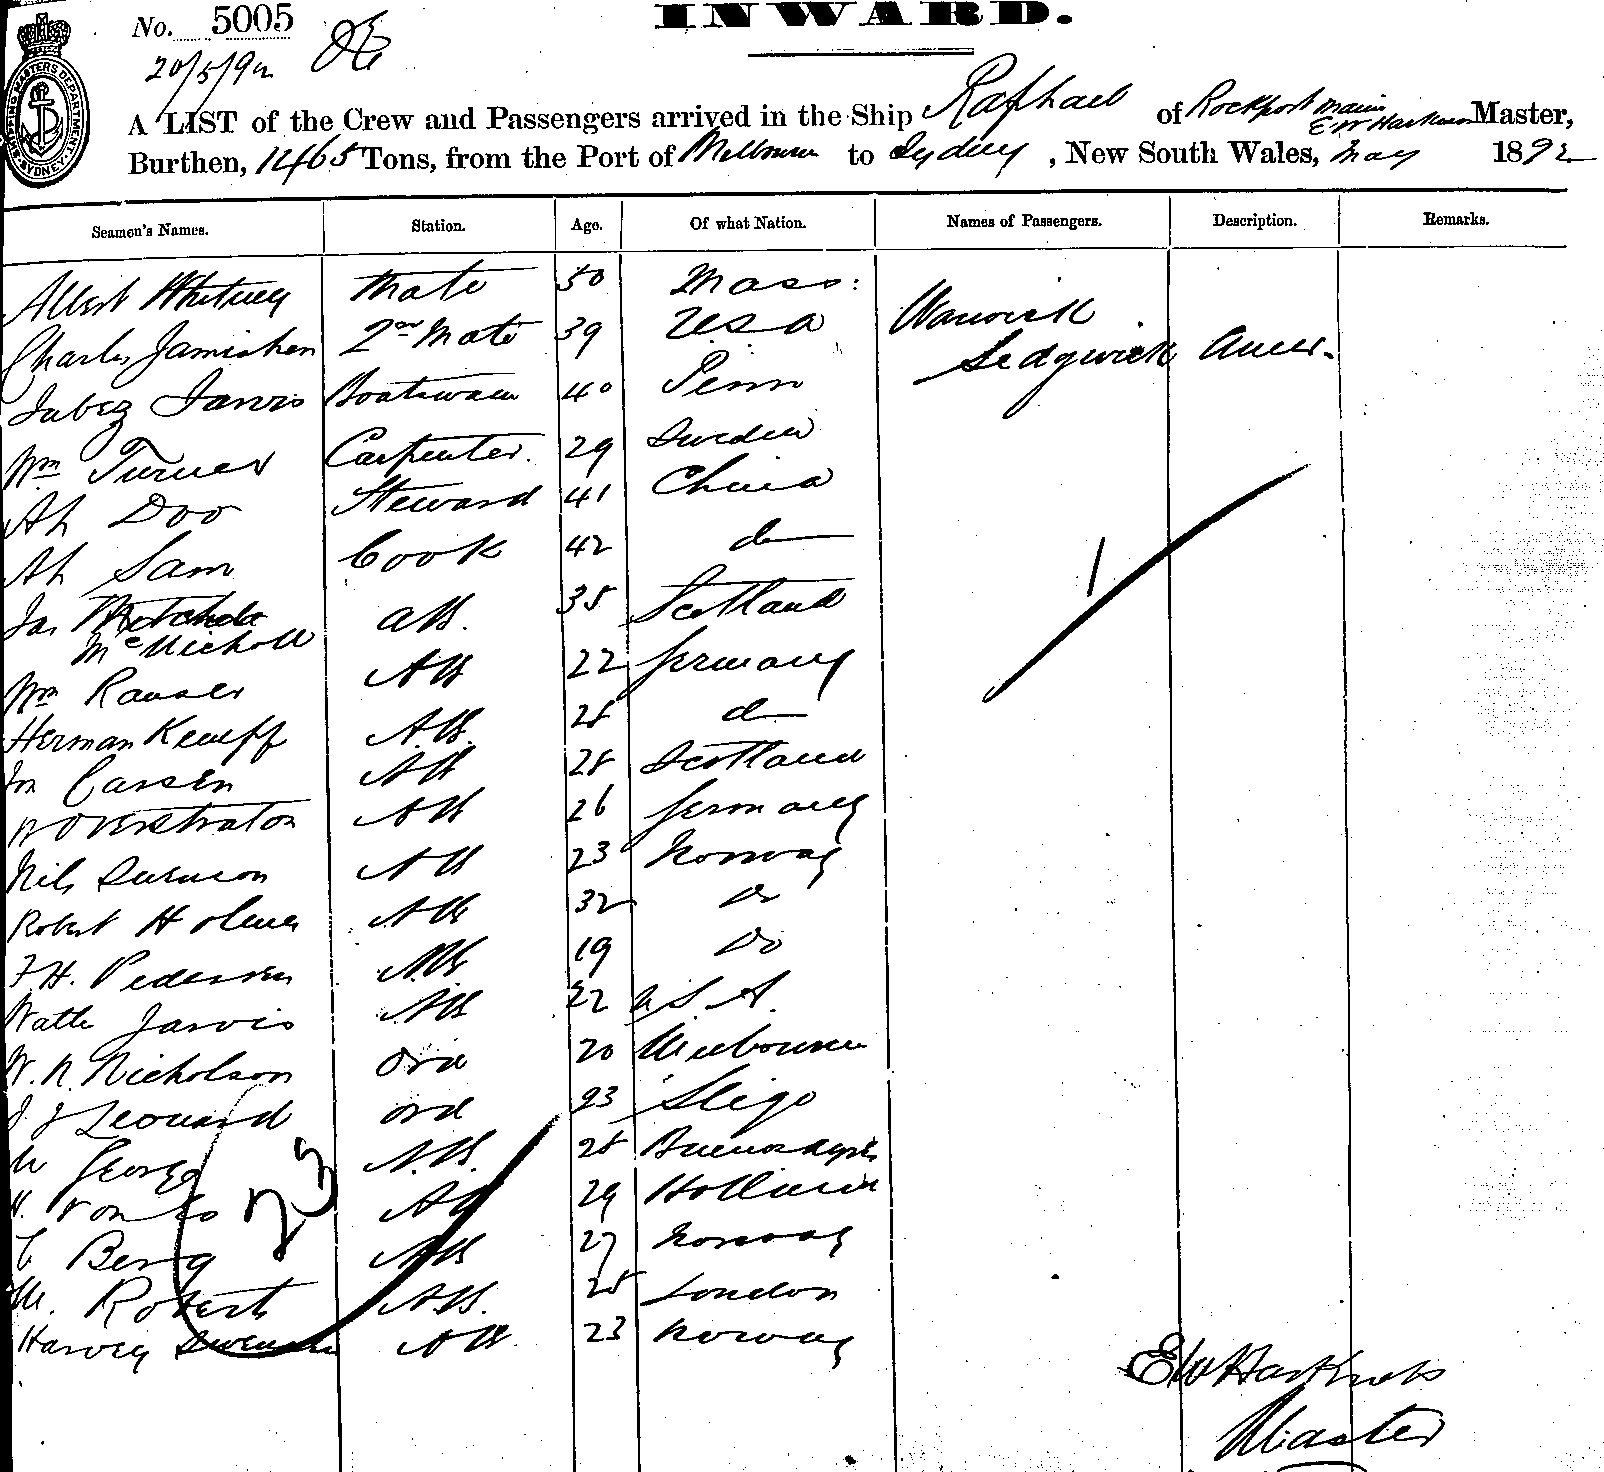 No. 5005
INWARD.
20/5/92
A LIST of the Crew and Passengers arrived in the Ship Raphael of Rockport Maine
E W Harkness Master,
Burthen, 1465 Tons, from the Port of Melbourne to Sydney, New South Wales, May 1892
Seamen's Names. Station. Age. Of what Nation. Names of Passengers. Description. Remarks.
Albert Whitney Mate 50 Mass:
Charles Jamieshen 2nd Mate 39 USA Warwick
Sedgwick Amer.
Jabez Jarvis Boatswain 40 Penn
Wm Turner Carpenter. 29 Sweden
Ah Doo Steward 41 China
Ah Sam Cook 42 do
Jas McNicholl AB. 35 Scotland
Wm Rauser AB 22 Germany
Herman Kempff A.B. 28 do
Jn Carsen AB 28 Scotland
W Overstraton AB 26 Germany
Nils Swenson AB 23 Norway
Robert Holmes AB 32 Do
F.H. Pedersen AB 19 Do
Walter Jarvis AB 22 U.S.A.
W. N. Nicholson Ord 20 Melbourne
J J Leonard Ord 23 Sligo
George A.B. 28 Buenos Ayres
AB 29 Holland
C Berg AB 27 Norway
M. Roberts AB. 25 London
Harvey Swensen AB 23 Norway
1
23
E W Harkness
Master